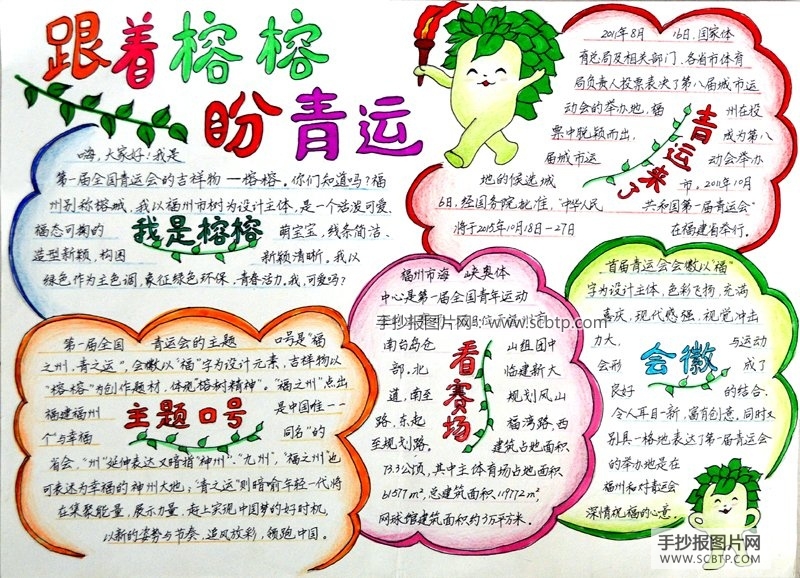 跟着榕榕
盼青运
嗨,大家好!我是
第一届全国青运会的吉祥物——榕榕。你们知道吗?福
州别称榕城,我以福州市树为设计主体,是一个活泼可爱、
福态可掬的 萌宝宝,线条简洁、
我是榕榕
造型新颖,构图 新颖清晰。我以
绿色作为主色调,象征绿色环保,青春活力。我,可爱吗?
2011年8月 16日,国家体
育总局及相关部门、各省市体育
局负责人投票表决了第八届城市运
动会的举办地,福 州在投
票中脱颖而出, 成为第八
届城市运 动会举办
地的候选城 市,2011年10月
青运来了
6日,经国务院批准,“中华人民 共和国第一届青运会”
将于2015年10月18日-27日 在福建省举行。
第一届全国 青运会的主题 口号是“福
之州,青之运”,会徽以“福”字为设计元素,吉祥物以
“榕榕”为创作题材,体现榕树精神”。“福之州”点出
福建福州 是中国唯一一
主题口号
个与幸福 同名”的
省会,“州”延伸表达又暗指“神州”、“九州”,“福之州”也
可表达为幸福的神州大地;“青之运”则暗喻年轻一代将
在集聚能量、展示力量、赶上实现中国梦的好时机,
以新的姿势与节奏、追风放彩,领跑中国。
福州市海 峡奥体
中心是第一届全国青年运动
手抄报图片网:www.scbtp.com
南台岛仓 山组团中
部,北 临建新大
道,南至 规划凤山
路,东起 福湾路,西
至规划路。 建筑占地面积
看赛场
73.3公顷,其中主体育场占地面积
61577m²,总建筑面积119772m²,
网球馆建筑面积约3万平方米。
首届青运会会徽以“福”
字为设计主体,色彩飞扬,充满
喜庆,现代感强,视觉冲击
力大, 与运动
会形 成了
会徽
良好 的结合,
令人耳目一新,富有创意。同时又
别具一格地表达了第一届青运会
的举办地是在
福州和对青运会
深情祝福的心意。
手抄报图片网
WWW.SCBTP.COM